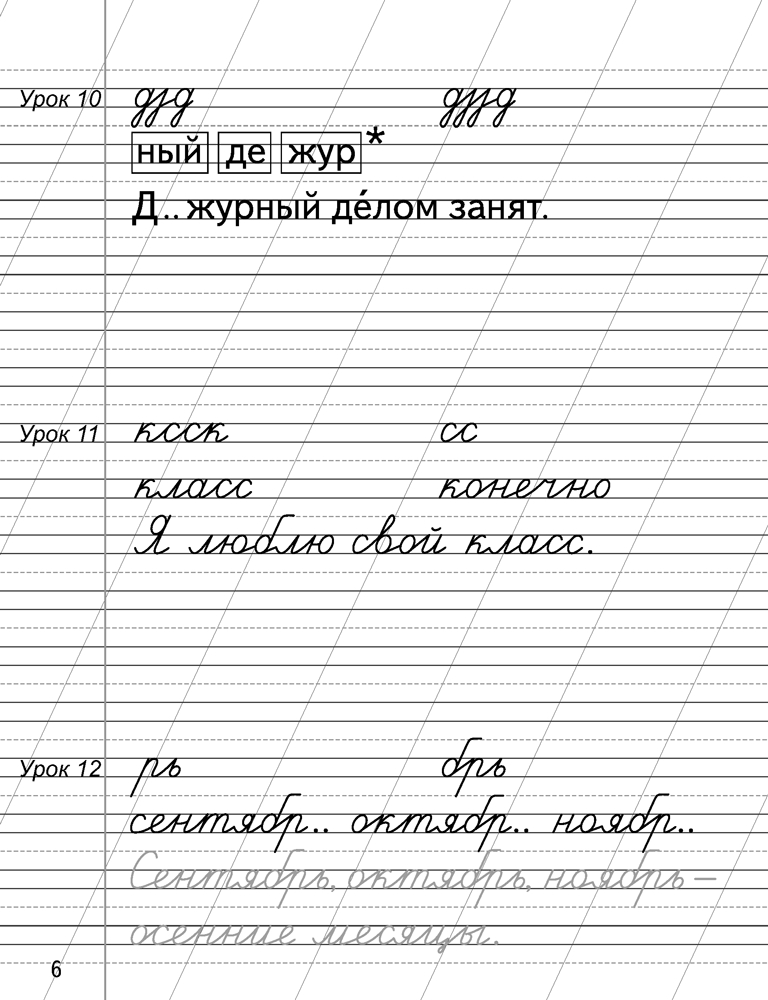 Урок 10 дзд дззд
ный де жур*
Д..журный де́лом занят.
Урок 11 кссск сс
класс конечно
Я люблю свой класс.
Урок 12 рь брь
сентябр.. октябр.. ноябр..
Сентябрь, октябрь, ноябрь –
осенние месяцы.
6